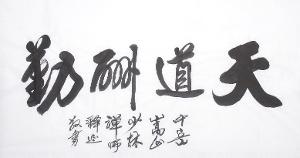 天道酬勤
中岳
嵩山
少林
禅师
释延
敬书